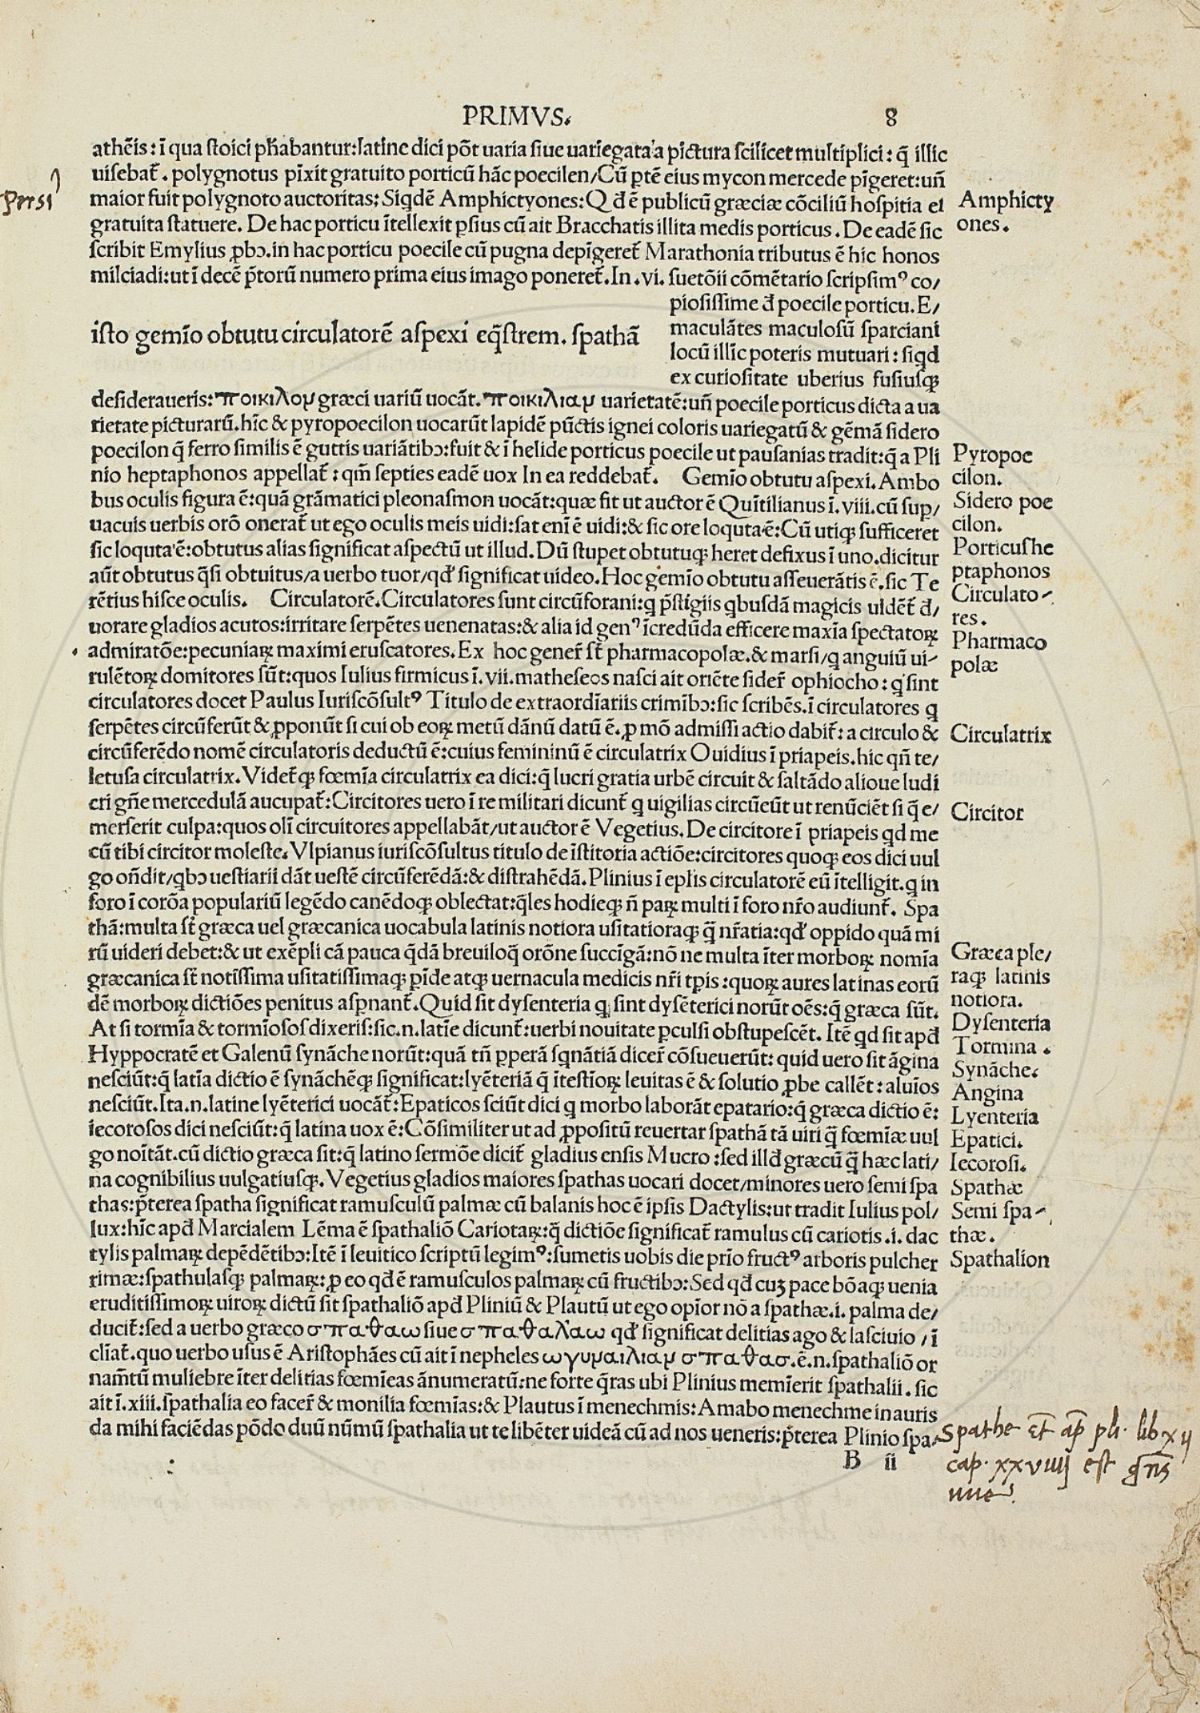 PRIMVS. 8
athēis: ī qua stoici phabantur: latine dici pōt uaria siue uariegata a pictura scilicet multiplici: q̄ illic
uisebat̄. polygnotus pīxit gratuito porticū hāc poecilen/Cū ꝑtē eius mycon mercede pīgeret: uñ
maior fuit polygnoto auctoritas: Siqdē Amphictyones: Qđ ē publicū græciæ cōciliū hospitia ei
gratuita statuere. De hac porticu ītellexit ꝑsius cū ait Bracchatis illita medis porticus. De eadē sic
scribit Emylius ꝓbꝰ. in hac porticu poecile cū pugna depīgeret̄ Marathonia tributus ē hic honos
milciadi: ut ī decē p̄torū numero prima eius imago poneret̄. In .vi. suetōii cōmētario scripsimꝰ co/
piosissime đ poecile porticu. E/
isto gemīo obtutu circulatorē aspexi eq̄strem. spathā
maculātes maculosū sparciani
locū illic poteris mutuari: siqđ
ex curiositate uberius fusiusqꝫ
desideraueris: ποικιλομ græci uariū uocāt. ποικιλιαμ uarietatē: uñ poecile porticus dicta a ua
rietate picturarū. hīc & pyropoecilon uocarūt lapidē pūctis ignei coloris uariegatū & gēmā sidero
poecilon q̄ ferro similis ē guttis uariātibꝰ: fuit & ī helide porticus poecile ut pausanias tradit: q̄ a Pli
nio heptaphonos appellat̄: qm̄ septies eadē uox In ea reddebat̄. Gemīo obtutu aspexi. Ambo
bus oculis figura ē: quā grāmatici pleonasmon uocāt: quæ fit ut auctor ē Quītilianus ī. viii. cū sup/
uacuis uerbis orō onerat̄ ut ego oculis meis uidi: sat enī ē uidi: & sic ore loquta ē: Cū utiqꝫ sufficeret
sic loquta ē: obtutus alias significat aspectū ut illud. Dū stupet obtutuqꝫ heret defixus ī uno. dicitur
aūt obtutus q̄si obtuitus/a uerbo tuor/qđ significat uideo. Hoc gemīo obtutu asseuerātis ē. sic Te
rētius hisce oculis. Circulatorē. Circulatores sunt circūforani: q p̄stigiis qbusdā magicis uidēt̄ đ/
uorare gladios acutos: irritare serpētes uenenatas: & alia id genꝰ īcredūda efficere maxīa spectatoꝝ
admiratōe: pecuniaꝝ maximi eruscatores. Ex hoc gener̄ st̄ pharmacopolæ. & marsi/q anguiū ui-
rulētoꝝ domitores sūt: quos Iulius firmicus ī. vii. matheseos nasci ait oriēte sider̄ ophiocho: q sint
circulatores docet Paulus Iuriscōsultꝰ Titulo de extraordīariis crimībꝰ: sic scribēs. ī circulatores q
serpētes circūferūt & ꝓponūt si cui ob eoꝝ metū dānū datū ē. ꝓ mō admissi actio dabit̄: a circulo &
circūferēdo nomē circulatoris deductū ē: cuius femininū ē circulatrix Ouidius ī priapeis. hic qn̄ te/
letusa circulatrix. Videt̄qꝫ fœmīa circulatrix ea dici: q̄ lucri gratia urbē circuit & saltādo alioue ludi
cri gn̄e mercedulā aucupat̄: Circitores uero ī re militari dicunt̄ q uigilias circūeūt ut renūciēt si q̄ e/
merserit culpa: quos olī circuitores appellabāt/ut auctor ē Vegetius. De circitore ī priapeis qđ me
cū tibi circitor moleste. Vlpianus iuriscōsultus titulo de īstitoria actiōe: circitores quoqꝫ eos dici uul
go oñdit/qbꝰ uestiarii dāt uestē circūferēdā: & distrahēdā. Plinius ī eplis circulatorē eū ītelligit. q in
foro ī corōa populariū legēdo canēdoqꝫ oblectat: q̄les hodieqꝫ ñ paꝝ multi ī foro nr̄o audiunt̄. Spa
thā: multa st̄ græca uel græcanica uocabula latinis notiora usitatioraqꝫ q̄ nr̄atia: qđ oppido quā mi
rū uideri debet: & ut exēpli cā pauca q̄dā breuiloq̄ orōne succīgā: nō ne multa īter morboꝝ nomīa
græcanica st̄ notissima usitatissimaqꝫ pīde atqꝫ uernacula medicis nr̄i tp̄is: quoꝝ aures latinas eorū
dē morboꝝ dictiōes penitus aspnant̄. Quid sit dysenteria q sint dysēterici norūt oēs: q̄ græca sūt.
At si tormīa & tormīosos dixeris: sic .n. latīe dicunt̄: uerbi nouitate ꝑculsi obstupescēt. Itē qđ sit apđ
Hyppocratē et Galenū synāche norūt: quā tñ ꝑperā sq̄nātiā dicer̄ cōsueuerūt: quid uero sit āgina
nesciūt: q̄ latīa dictio ē synāchēqꝫ significat: lyēteriā q̄ ītestīoꝝ leuitas ē & solutio ꝓbe callēt: aluīos
nesciūt. Ita .n. latine lyēterici uocāt̄: Epaticos sciūt dici q morbo laborāt epatario: q̄ græca dictio ē:
iecorosos dici nesciūt: q̄ latina uox ē: Cōsimiliter ut ad ꝓpositū reuertar spathā tā uiri q̄ fœmīæ uul
go noītāt. cū dictio græca sit: q̄ latino sermōe dicit̄ gladius ensis Mucro: sed illđ græcū q̄ hæc lati/
na cognibilius uulgatiusqꝫ. Vegetius gladios maiores spathas uocari docet/minores uero semi spa
thas: p̄terea spatha significat ramusculū palmæ cū balanis hoc ē ipsis Dactylis: ut tradit Iulius pol/
lux: hīc apđ Marcialem Lēma ē spathaliō Cariotaꝝ: q̄ dictiōe significat̄ ramulus cū cariotis .i. dac
tylis palmaꝝ depēdētibꝰ: Itē ī leuitico scriptū legimꝰ: sumetis uobis die prīo fructꝰ arboris pulcher
rimæ: spathulasqꝫ palmaꝝ: ꝓ eo qđ ē ramusculos palmaꝝ cū fructibꝰ: Sed qđ cuꝫ pace bōaqꝫ uenia
eruditissimoꝝ uiroꝝ dictū sit spathaliō apđ Pliniū & Plautū ut ego opīor nō a spathæ .i. palma de/
ducit̄: sed a uerbo græco σπαθαω siue σπαθαλαω qđ significat delitias ago & lasciuio/ī
cliat̄. quo uerbo usus ē Aristophāes cū ait ī nepheles ωγυμαιλιαμ σπαθασ. ē .n. spathaliō or
namtū muliebre īter delitias fœmīeas ānumeratū: ne forte q̄ras ubi Plinius memīerit spathalii. sic
ait ī. xiii. spathalia eo facer̄ & monilia fœmīas: & Plautus ī menechmis: Amabo menechme inauris
da mihi faciēdas pōdo duū nūmū spathalia ut te libēter uideā cū ad nos ueneris: p̄terea Plinio spa-
B ii
Persi
Amphicty
ones.
Pyropoe
cilon.
Sidero poe
cilon.
Porticus he
ptaphonos
Circulato-
res.
Pharmaco
polæ
Circulatrix
Circitor
Græca ple/
raqꝫ latinis
notiora.
Dysenteria
Tormina.
Synāche.
Angina
Lyenteria
Epatici.
Iecorosi.
Spathæ
Semi spa-
thæ.
Spathalion
Spathe et̄ ap̄ pli. lib xij
cap. xxviiij est